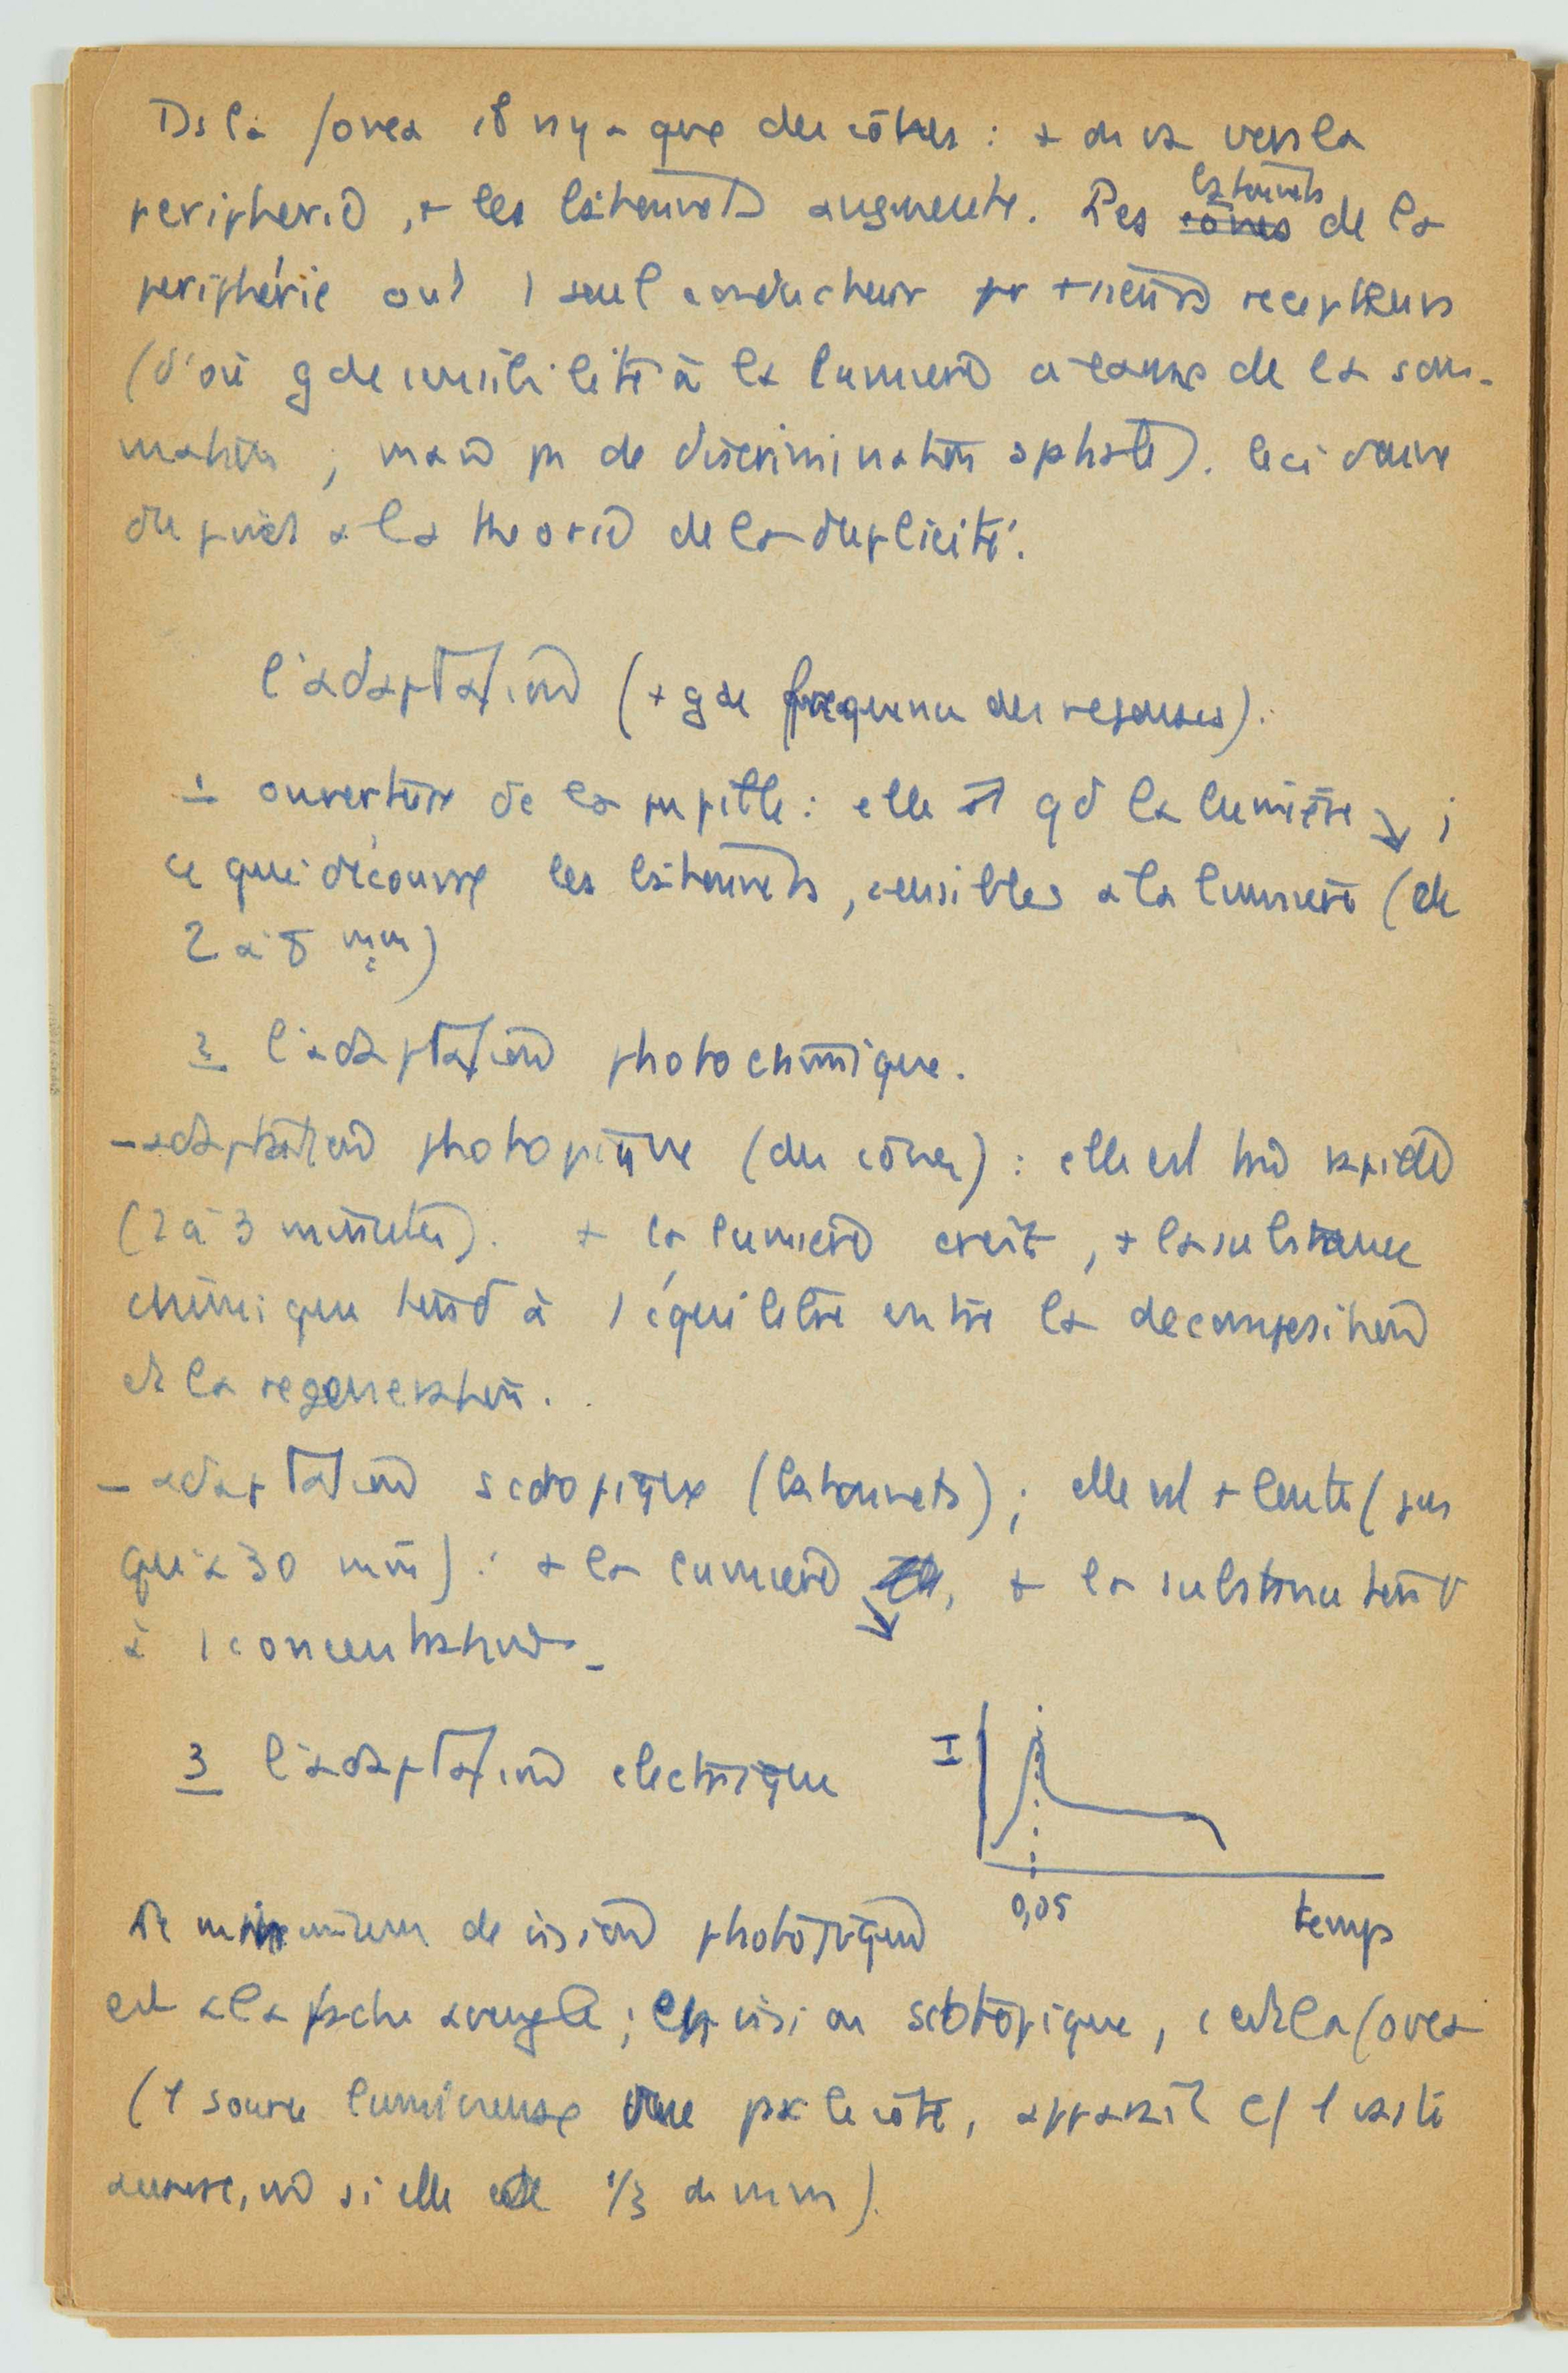 Ds la fovea il n'y a que des cônes : + on va vers la
peripherie, + les batonnets augmente. Les cones batonnets de la
periphérie ont 1 seul conducteur pr +sieurs recepteurs
(d'où gde sensibilité à la lumiere a cause de la som-
mation ; mais pu de discrimination spatiale). Ceci donne
du poids a la theorie de la duplicité.
l'adaptation (+ gde frequence des reponses).
1 ouverture de la pupille : elle ↗ qd la lumière ↘ ;
ce qui découvre les batonnets, sensibles a la lumiere (de
2 à 8 mm)
2 l'adaptation photochimique.
- adaptation photopique (des cônes) : elle est tres rapide
(2 à 3 minutes). + la lumiere croit, + la substance
chimique tend à 1 équilibre entre la decomposition
et la regeneration.
- adaptation scotopique (batonnets) ; elle est + lente (jus
qu'a 30 min) : + la lumiere ↘, + la substance tend
à 1 concentration -
3 l'adaptation electrique
I
0,05
temps
Le minimum de vision photopique
est a la tache aveugle ; en vision scotopique, c'est la fovea
(1 source lumineuse vue par le côté, apparait c/ 1 vaste
si elle est de 1/3 de mm).